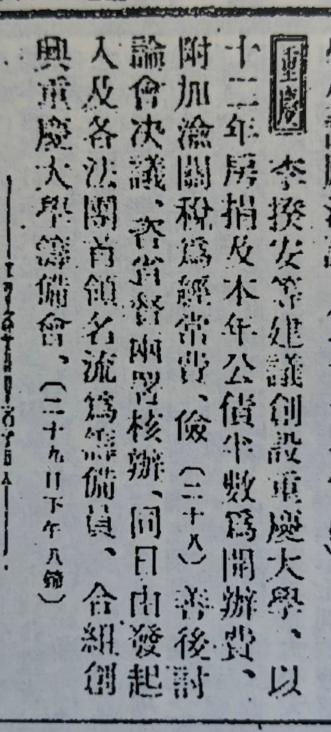 重慶 李揆安等建議創設重慶大學、以
十二年房捐及本年公債半數爲開辦費、
附加渝關稅爲經常費、儉(二十八)善後討
論會决議、咨省督兩署核辦、同日由發起
人及各法團首領名流爲籌備員、合組創
興重慶大學籌備會、(二十九日下午八鐘)